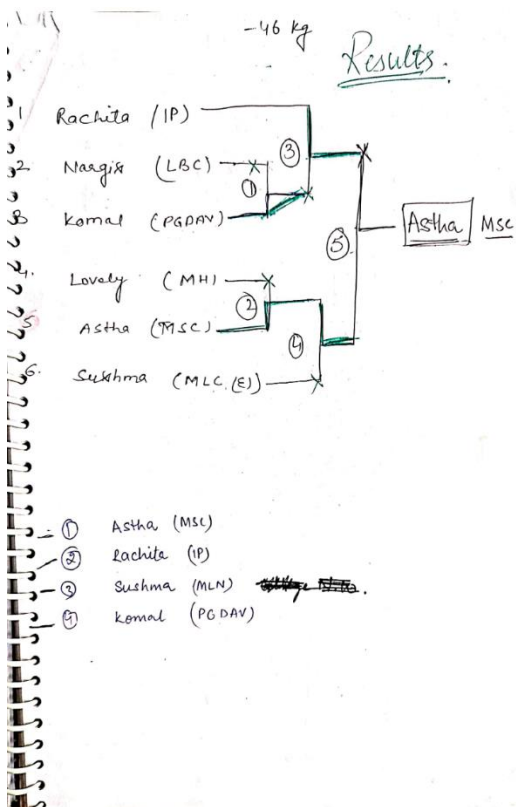 -46 kg
Results.
1 Rachita (IP)
2. Nargis (LBC)
3 Komal (PGDAV)
4. Lovely (MH)
5 Astha (MSC)
6. Sushma (MLC (E))
①
②
③
④
⑤
Astha MSC
① Astha (MSC)
② Rachita (IP)
③ Sushma (MLN)
④ Komal (PGDAV)